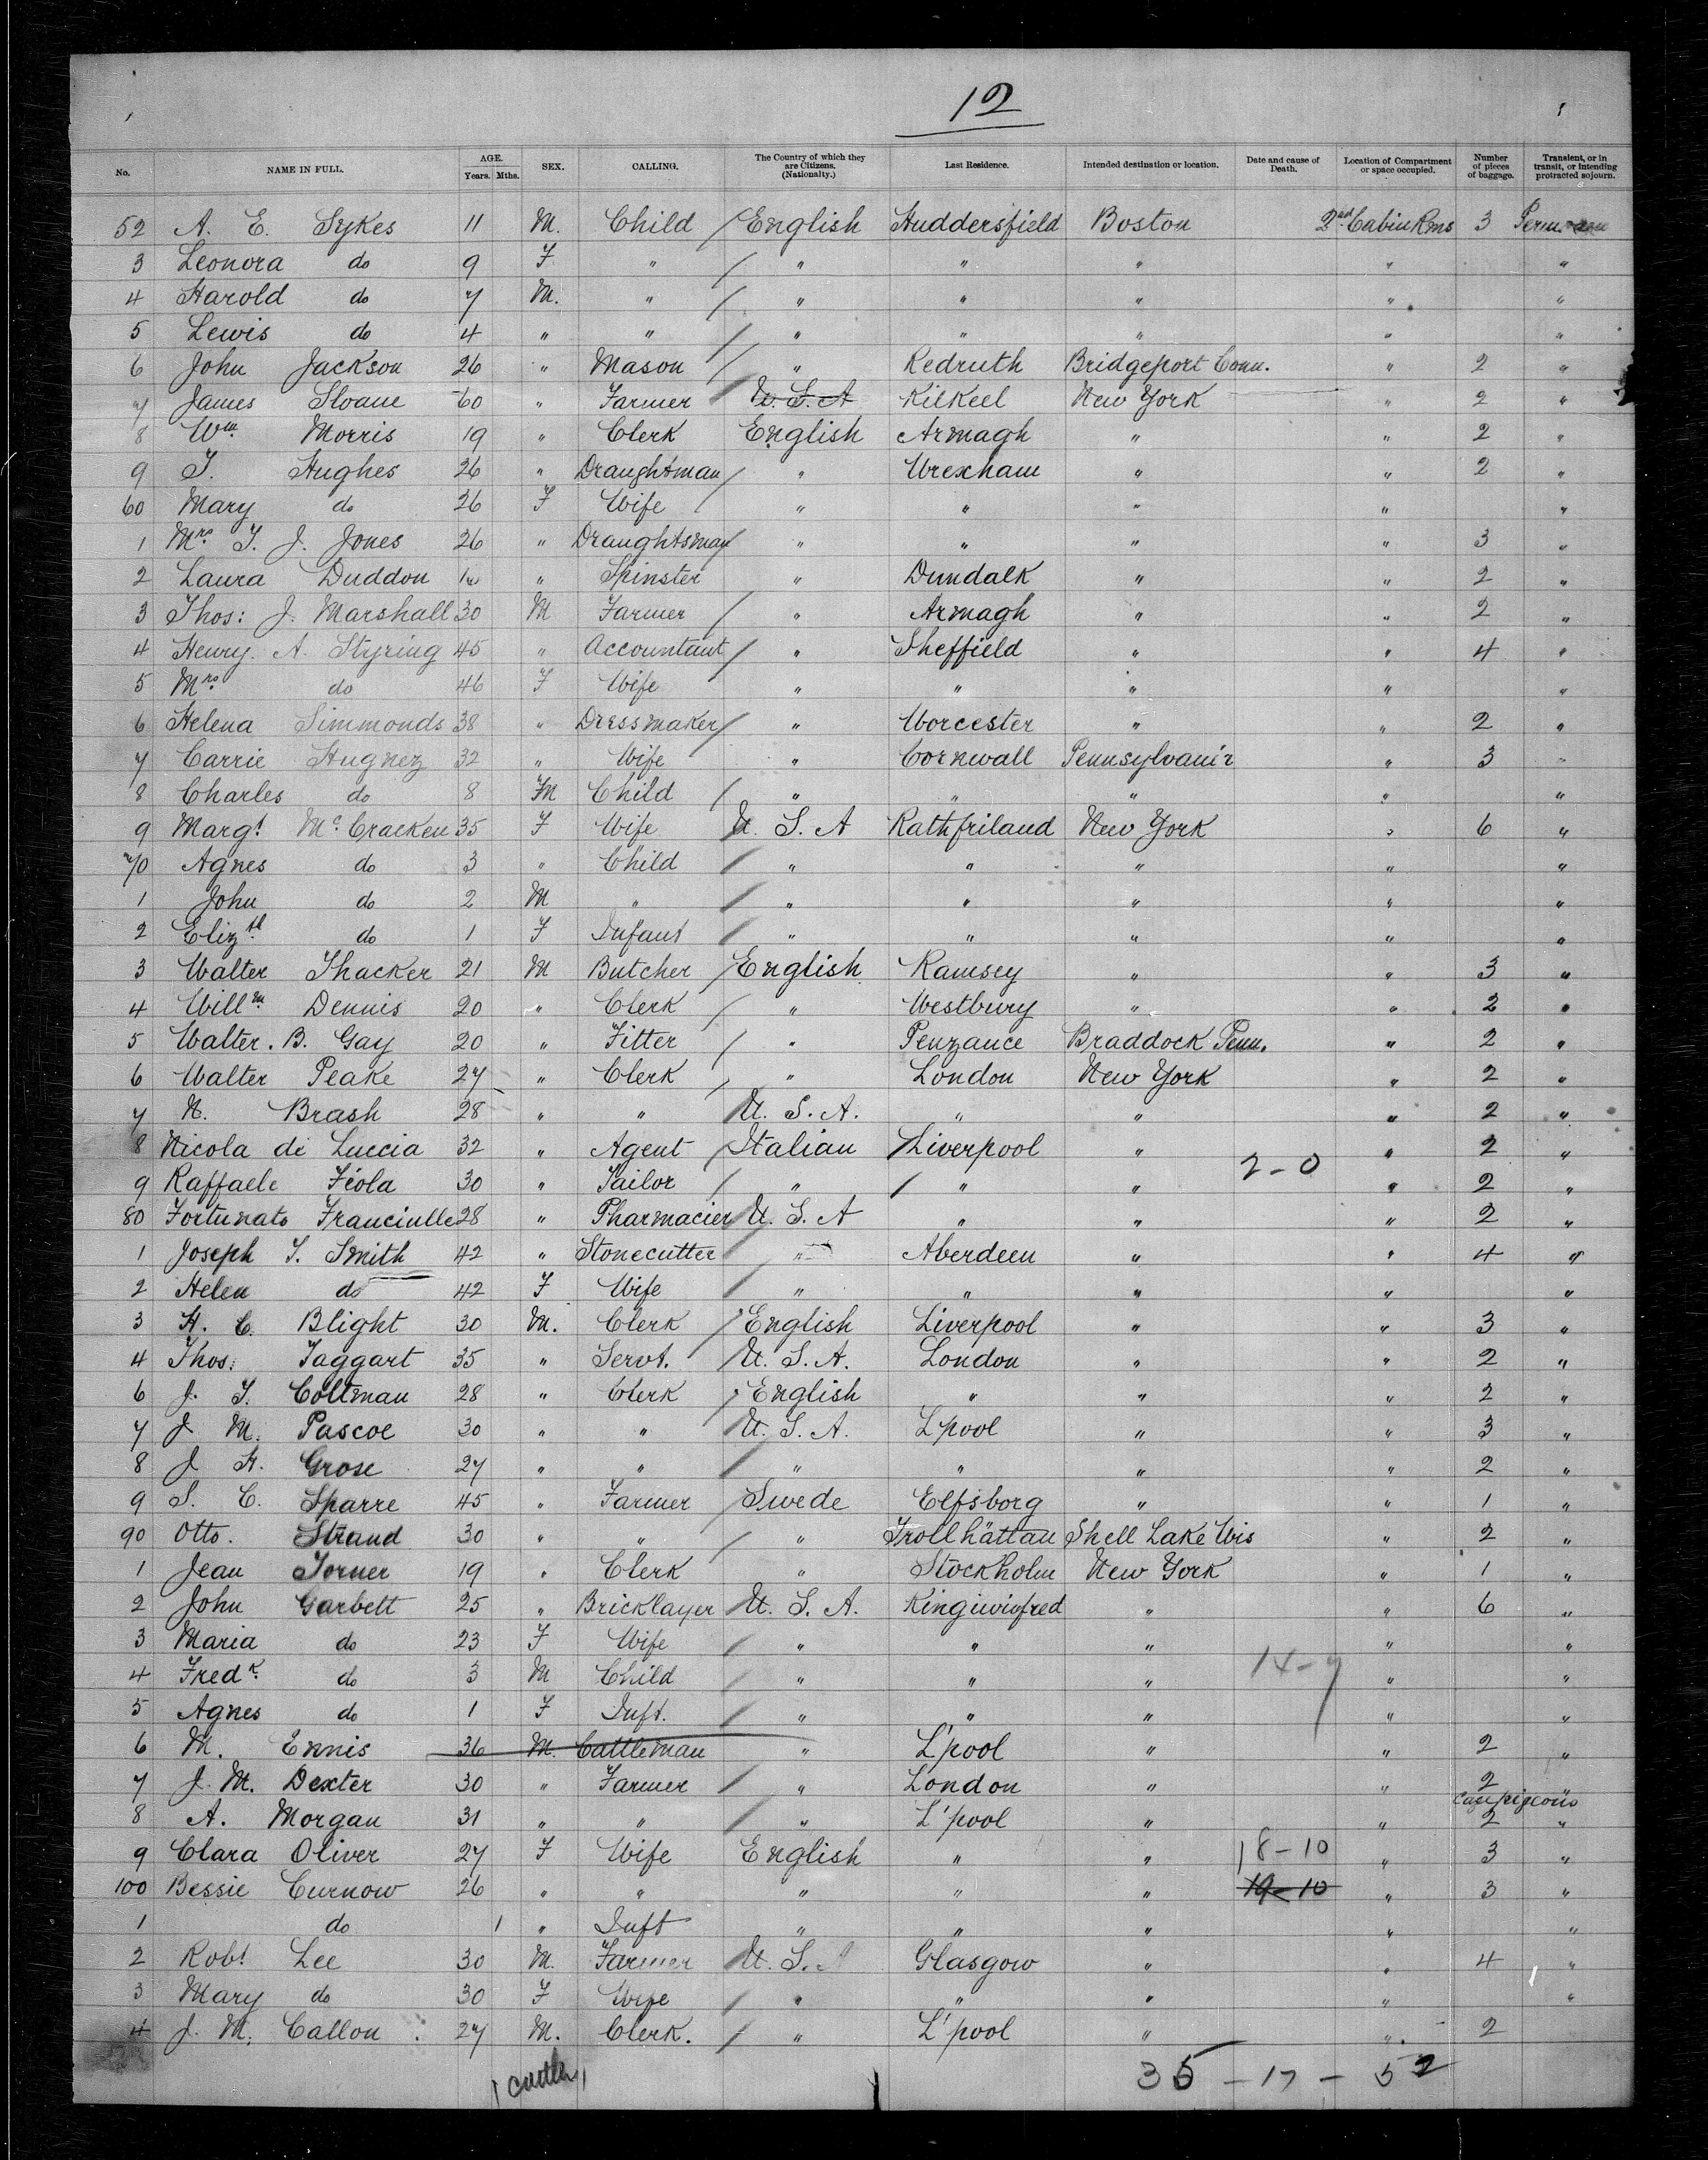 12
No. NAME IN FULL. AGE. Years. Mths. SEX. CALLING. The Country of which they are Citizens. (Nationalty.) Last Residence. Intended destination or location. Date and cause of Death. Location of Compartment or space occupied. Number of pieces of baggage. Transient, or in transit, or intending protracted sojourn.
52 A. E. Sykes 11 M. Child English Huddersfield Boston 2nd Cabin Rms 3 Perm.
3 Leonora do 9 F " " " " " "
4 Harold do 7 M. " " " " " "
5 Lewis do 4 " " " " " " "
6 John Jackson 26 " Mason " Redruth Bridgeport Conn. " 2 "
7 James Sloane 60 " Farmer U. S. A Kilkeel New York " 2 "
8 Wm Morris 19 " Clerk English Armagh " " 2 "
9 T. Hughes 26 " Draughtman " Wrexham " " 2 "
60 Mary do 26 F Wife " " " " "
1 Mrs T. J. Jones 26 " Draughtsman " " " " 3 "
2 Laura Duddon " Spinster " Dundalk " " 2 "
3 Thos: J. Marshall 30 M Farmer " Armagh " " 2 "
4 Henry. A. Styring 45 " Accountant " Sheffield " " 4 "
5 Mrs do 46 F Wife " " " " "
6 Helena Simmonds 38 " Dressmaker " Worcester " " 2 "
7 Carrie Hugnez 32 " Wife " Cornwall Pennsylvania " 3 "
8 Charles do 8 M Child " " " " "
9 Margt McCracken 35 F Wife U. S. A Rathfriland New York " 6 "
70 Agnes do 3 " Child " " " " "
1 John do 2 M " " " " " "
2 Elizth do 1 F Infant " " " " "
3 Walter Thacker 21 M Butcher English Ramsey " " 3 "
4 Willm Dennis 20 " Clerk " Westbury " " 2 "
5 Walter. B. Gay 20 " Fitter " Penzance Braddock Penn. " 2 "
6 Walter Peake 27 " Clerk " London New York " 2 "
7 N. Brash 28 " " U. S. A. " " " 2 "
8 Nicola di Luccia 32 " Agent Italian Liverpool " 2-0 " 2 "
9 Raffaele Fiola 30 " Tailor " " " " 2 "
80 Fortunato Franciulle 28 " Pharmacier U. S. A " " " 2 "
1 Joseph T. Smith 42 " Stonecutter " Aberdeen " " 4 "
2 Helen do 42 F Wife " " " " "
3 H. C. Blight 30 M. Clerk English Liverpool " " 3 "
4 Thos: Taggart 35 " Servt. U. S. A. London " " 2 "
6 J. T. Coltman 28 " Clerk English " " " 2 "
7 J. M. Pascoe 30 " " U. S. A. L'pool " " 3 "
8 J H. Grose 27 " " " " " " 2 "
9 S. C. Sparre 45 " Farmer Swede Elfsborg " " 1 "
90 Otto. Strand 30 " " " Trollhättan Shell Lake Wis " 2 "
1 Jean Torner 19 " Clerk " Stockholm New York " 1 "
2 John Garbett 25 " Bricklayer U. S. A. Kingwinfred " " 6 "
3 Maria do 23 F Wife " " " " "
4 Fredk do 3 M Child " " " 14-7 " "
5 Agnes do 1 F Inft. " " " " "
6 M. Ennis 36 M. Cattleman " L'pool " " 2 "
7 J. M. Dexter 30 " Farmer " London " " 2 "
8 A. Morgan 31 " " " L'pool " " pigeons 2 "
9 Clara Oliver 27 F Wife English " " 18-10 " 3 "
100 Bessie Curnow 26 " " " " " 19-10 " 3 "
1 do 1 " Inft " " " " "
2 Robt Lee 30 M. Farmer U. S. A Glasgow " " 4 "
3 Mary do 30 F Wife " " " " "
4 J. M. Callon 27 M. Clerk. " L'pool " " 2
35-17-52